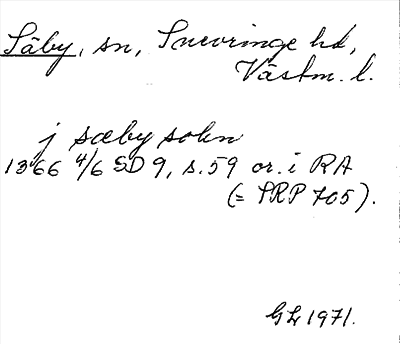 Säby, sn, Snevringe hd,
Västm. l.
j sæby sokn
1366 4/6 SD 9, s. 59 or. i RA
(= SRP 705).
GL 1971.